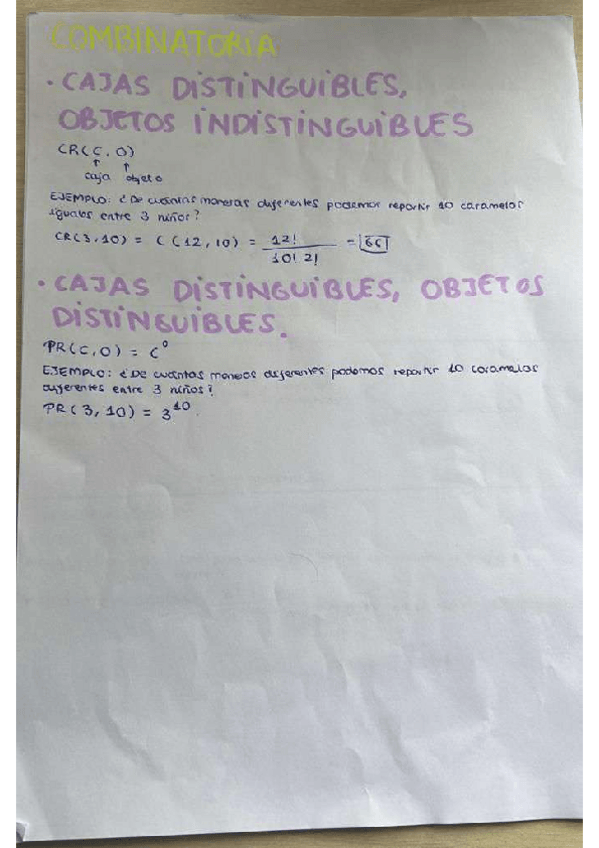 COMBINATORIA
· CAJAS DISTINGUIBLES,
OBJETOS INDISTINGUIBLES
CR(C, O)
↑ ↑
caja objeto
EJEMPLO: ¿De cuántas maneras diferentes podemos repartir 10 caramelos
iguales entre 3 niños?
CR(3,10) = C(12,10) = 12! / 10! 2! = 66
· CAJAS DISTINGUIBLES, OBJETOS
DISTINGUIBLES.
PR(C,O) = C^O
EJEMPLO: ¿De cuántas maneras diferentes podemos repartir 10 caramelos
diferentes entre 3 niños?
PR(3,10) = 3^10.